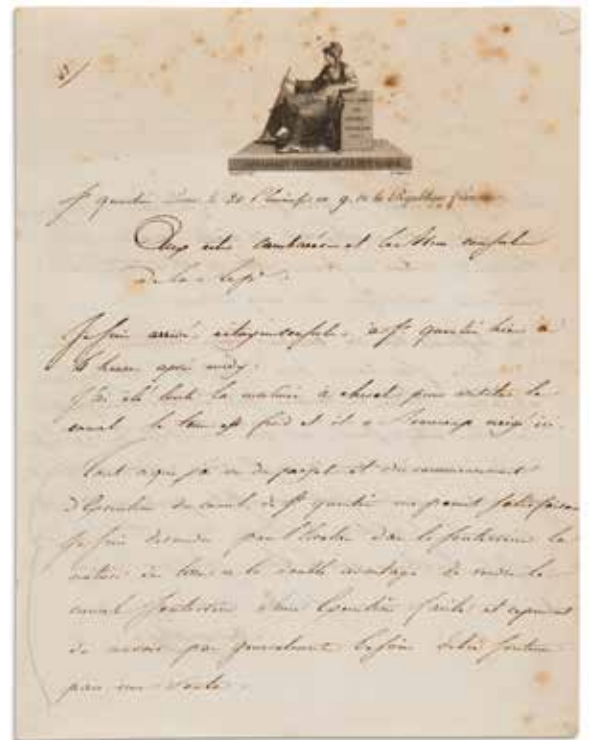 St quentin le 20 Pluviose an 9. de la République française
Aux citns Cambacérès et Le Brun consuls
de la Repe.
Je suis arrivé citoyens consuls, à St quentin hier à
heures après midy.
J'ai été toute la matinée à cheval pour visiter le
canal. le tems est froid et il a beaucoup neigé ici.
Tout ce que j'ai vu du projet et du commencement
d'exécution du canal de St quentin me paroit satisfaisant
Je suis descendu par dans le souterrain la
nature du a le double avantage de rendre le
canal souterrain d'une exécution facile et cependant
de n'avoir pas besoin d'être soutenu
par une voute.